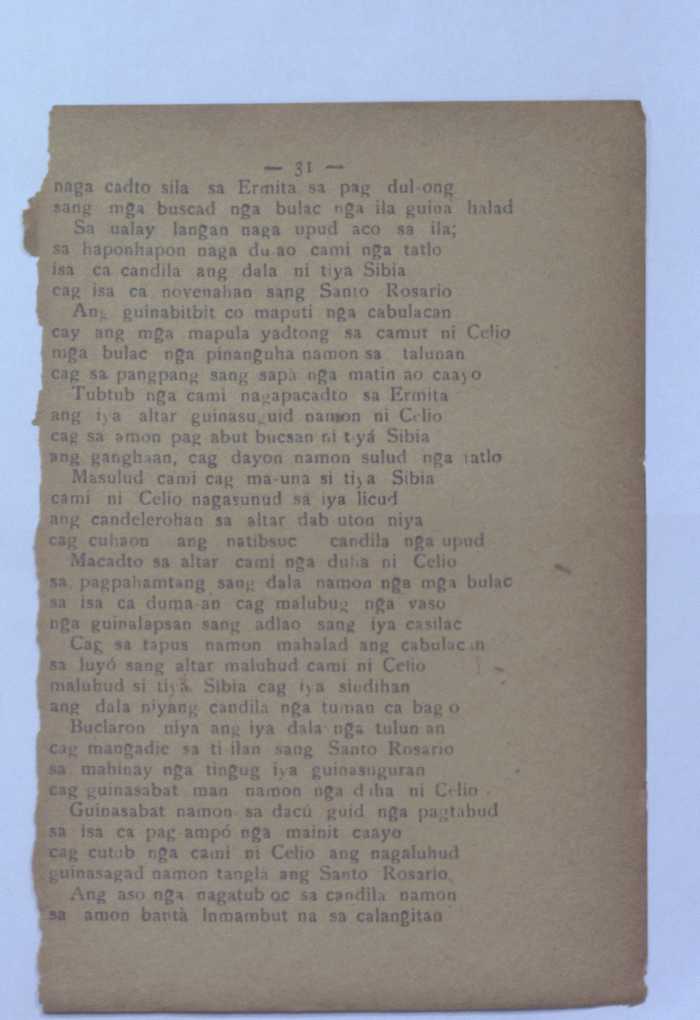 — 31 —
naga cadto sila sa Ermita sa pag dul-ong
sang mg̃a buscad nga bulac nga ila guina halad
Sa ualay langan naga upud aco sa ila;
sa haponhapon naga du-ao cami nga tatlo
isa ca candila ang dala ni tiya Sibia
cag isa ca novenahan sang Santo Rosario
Ang guinabitbit co maputi nga cabulacan
cay ang mga mapula yadtong sa camut ni Celio
mga bulac nga pinanguha namon sa talunan
cag sa pangpang sang sapà nga matin ao caayo
Tubtub nga cami nagapacadto sa Ermita
ang iya altar guinasuguid namon ni Celio
cag sa amon pag abut bucsan ni tiyá Sibia
ang ganghaan, cag dayon namon sulud nga tatlo
Masulud cami cag ma-una si tiya Sibia
cami ni Celio nagasunud sa iya licud
ang candelerohan sa altar dab uton niya
cag cuhaon ang natibsuc candila nga upud
Macadto sa altar cami nga duha ni Celio
sa pagpahamtang sang dala namon nga mga bulac
sa isa ca duma-an cag malubug nga vaso
nga guinalapsan sang adlao sang iya casilac
Cag sa tapus namon mahalad ang cabulacan
sa luyó sang altar maluhud cami ni Celio
maluhud si tiyà Sibia cag iya sindihan
ang dala niyang candila nga tuman ca bag o
Buclaron niya ang iya dala nga tulun an
cag mangadie sa ti ilan sang Santo Rosario
sa mahinay nga tingug iya guinasuguran
cag guinasabat man namon nga duha ni Celio
Guinasabat namon sa dacú guid nga pagtahud
sa isa ca pag-ampó nga mainit caayo
cag cutub nga cami ni Celio ang nagaluhud
guinasagad namon tanglà ang Santo Rosario,
Ang aso nga nagatub oc sa candila namon
sa amon bantà lnmambut na sa calangitan